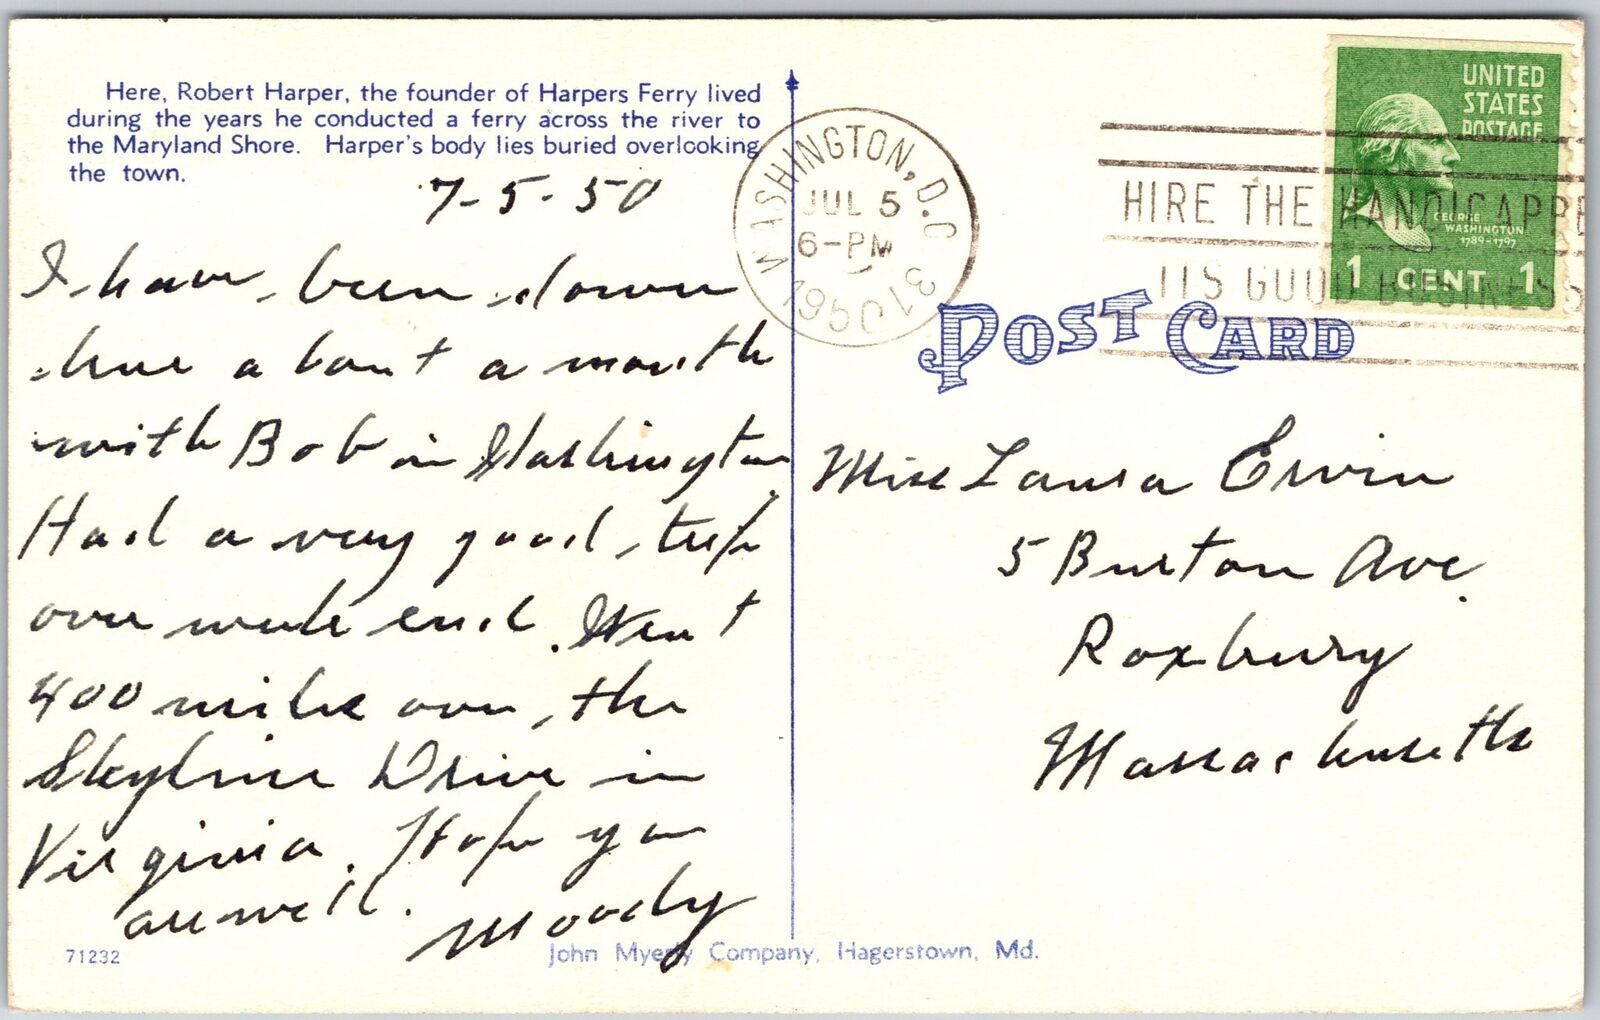 Here, Robert Harper, the founder of Harpers Ferry lived
during the years he conducted a ferry across the river to
the Maryland Shore. Harper's body lies buried overlooking
the town.
7-5-50
I have been down
here about a month
with Bob in Washington.
Had a very good trip
over week end. Went
400 miles over the
Skyline Drive in
Virginia. Hope you
are well. Moody
71232
John Myerly Company, Hagerstown, Md.
WASHINGTON, D.C.
JUL 5
6-PM
1950
HIRE THE HANDICAPPE
ITS GOOD BUSINESS
UNITED
STATES
POSTAGE
GEORGE
WASHINGTON
1789-1797
1 CENT 1
POST CARD
Miss Laura Ervin
5 Burton Ave.
Roxbury
Massachusetts